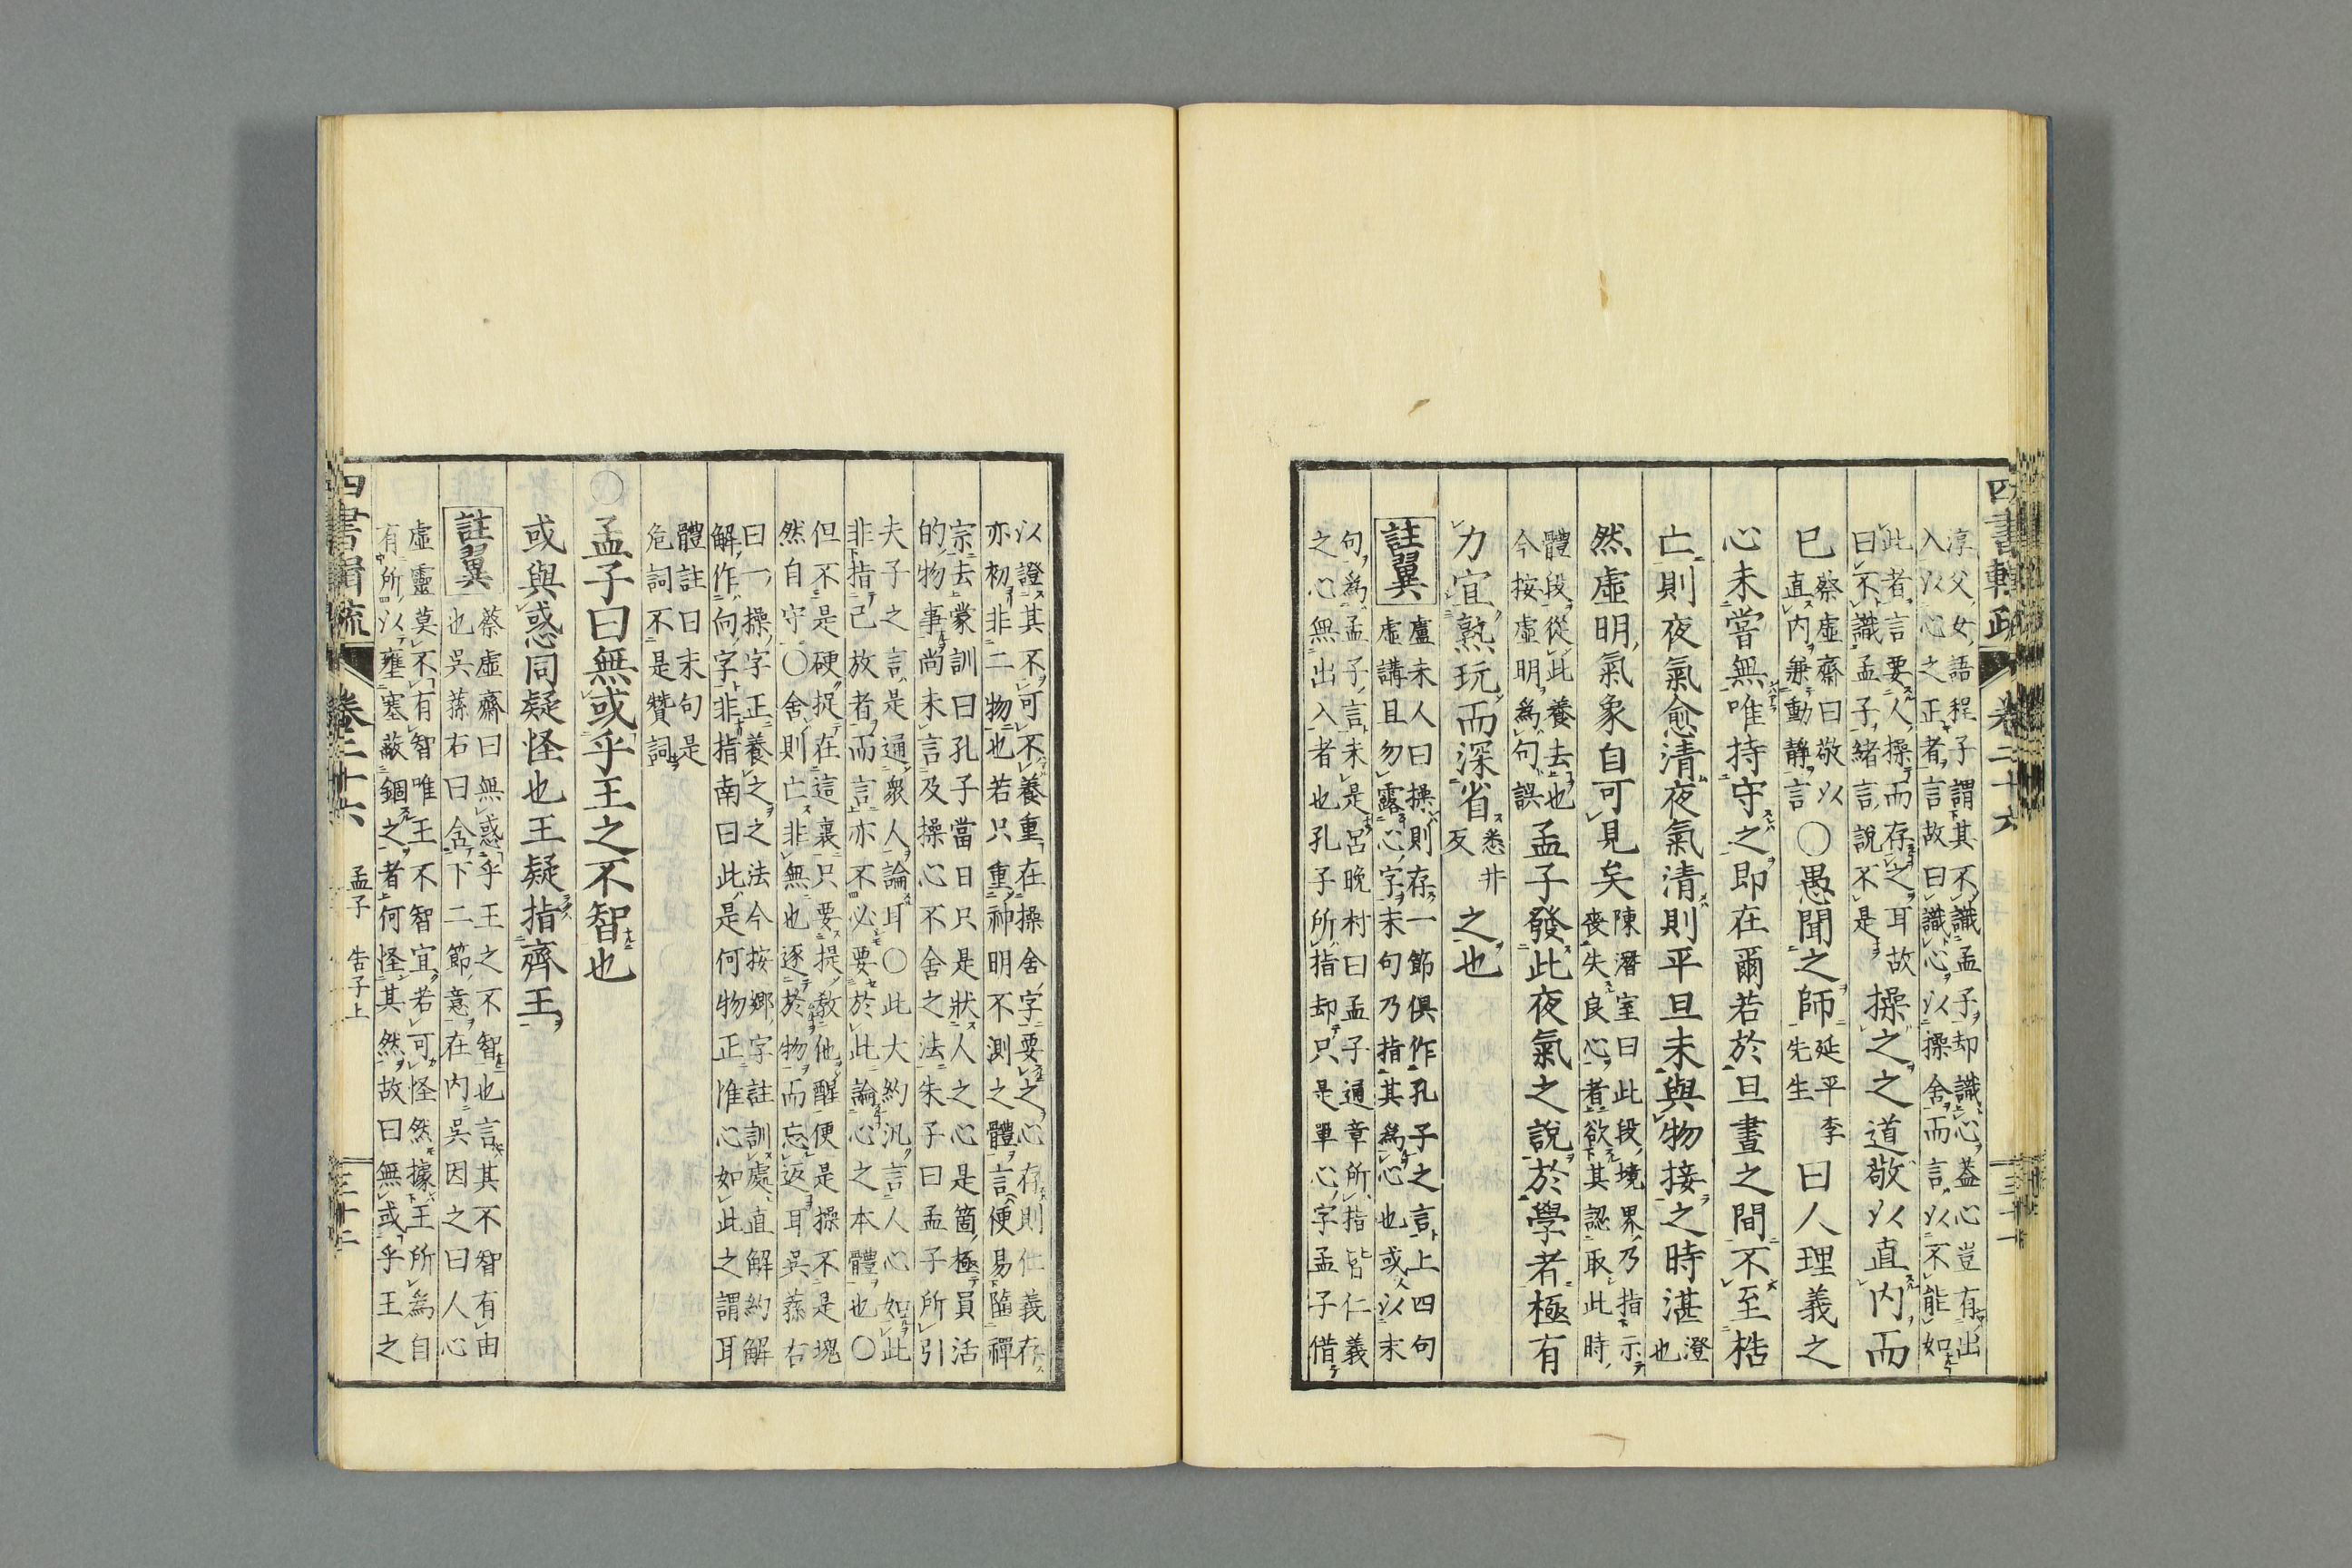 淳父女語程子謂其不識孟子却識心蓋心豈有出
入以心之正者言故曰識心以操舍而言以不能如
此者言要人操而存之耳故
曰不識孟子緒言說不是
操之之道敬以直內而
已
蔡虛齋曰敬以
直內兼動靜言
○愚聞之師
延平李
先生
曰人理義之
心未嘗無唯持守之即在爾若於旦晝之間不至梏
亡則夜氣愈清夜氣清則平旦未與物接之時湛
澄
也
然虛明氣象自可見矣
陳潛室曰此段境界乃指示
喪失良心者欲其認取此時
體段從此養去也
今按虛明為句誤
孟子發此夜氣之說於學者極有
力宜熟玩而深省
悉井
反
之也
註翼
盧未人曰操則存一節俱作孔子之言上四句
虛講且勿露心字末句乃指其為心也或以末
句為孟子言未是呂晚村曰孟子通章所指皆仁義
之心無出入者也孔子所指却只是單心字孟子借
四書輯疏 卷二十六 三十一
以證其不可不養重在操舍字要之心存則仁義存
亦初非二物也若只重神明不測之體言便易臨禪
宗去蒙訓曰孔子當日只是狀人之心是箇極員活
的物事尚未言及操心不舍之法朱子曰孟子所引
夫子之言是通衆人論耳○此大約汎言人心如此
非指已放者而言亦不必要於此論心之本體也○
但不是硬捉在這裏只要提教他醒便是操不是塊
然自守○舍則亡非無也逐於物而忘返耳吳蓀右
曰一操字正養之之法今按鄉字註訓處直解約解
解作向字非指南曰此是何物正惟心如此之謂耳
體註曰末句是
危詞不是贊詞
○孟子曰無或乎王之不智也
或與惑同疑怪也王疑指齊王
註翼
蔡虛齋曰無惑乎王之不智也言其不智有由
也吳蓀右曰含下二節意在內吳因之曰人心
虛靈莫不有智唯王不智宜若可怪然據王所為自
有所以壅塞蔽錮之者何怪其然故曰無或乎王之
四書輯疏 卷二十六 孟子 告子上 三十二